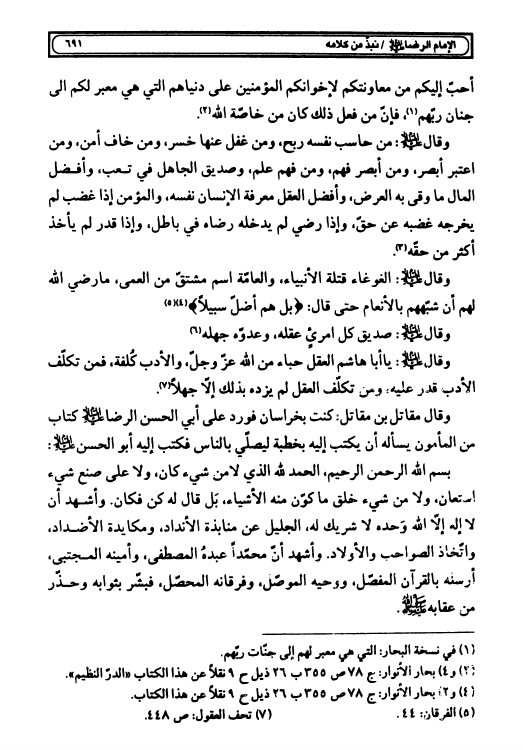 الإمام الرضا عليه السلام / نبذ من كلامه ٦٩١
أحبّ إليكم من معاونتكم لإخوانكم المؤمنين على دنياهم التي هي معبر لكم الى
جنان ربّهم(١)، فإنّ من فعل ذلك كان من خاصّة الله(٢).
وقال عليه السلام: من حاسب نفسه ربح، ومن غفل عنها خسر، ومن خاف أمن، ومن
اعتبر أبصر، ومن أبصر فهم، ومن فهم علم، وصديق الجاهل في تعب، وأفضل
المال ما وقى به العرض، وأفضل العقل معرفة الإنسان نفسه، والمؤمن إذا غضب لم
يخرجه غضبه عن حقّ، وإذا رضي لم يدخله رضاه في باطل، وإذا قدر لم يأخذ
أكثر من حقّه(٣).
وقال عليه السلام: الغوغاء قتلة الأنبياء، والعامّة اسم مشتقّ من العمى، مارضي الله
لهم أن شبّههم بالأنعام حتى قال: ﴿بل هم أضلّ سبيلاً﴾(٤)(٥)
وقال عليه السلام: صديق كل امرئٍ عقله، وعدوّه جهله(٦)
وقال عليه السلام: ياأبا هاشم العقل حباء من الله عزّ وجلّ، والأدب كُلفة، فمن تكلّف
الأدب قدر عليه، ومن تكلّف العقل لم يزده بذلك إلّا جهلاً(٧).
وقال مقاتل بن مقاتل: كنت بخراسان فورد على أبي الحسن الرضا عليه السلام كتاب
من المأمون يسأله أن يكتب إليه بخطبة ليصلّي بالناس فكتب إليه أبو الحسن عليه السلام:
بسم الله الرحمن الرحيم، الحمد لله الذي لامن شيء كان، ولا على صنع شيء
استعان، ولا من شيء خلق ما كوّن منه الأشياء، بَل قال له كن فكان. وأشهد أن
لا إله إلّا الله وَحده لا شريك له، الجليل عن منابذة الأنداد، ومكايدة الأضداد،
واتّخاذ الصواحب والأولاد. وأشهد أنّ محمّداً عبدهُ المصطفى، وأمينه المجتبى،
أرسله بالقرآن المفصّل، ووحيه الموصّل، وفرقانه المحصّل، فبشّر بثوابه وحذّر
من عقابه صلى الله عليه وآله.
(١) في نسخة البحار: التي هي معبر لهم إلى جنّات ربّهم.
(٢) و(٤) بحار الأنوار: ج ٧٨ ص ٣٥٥ ب ٢٦ ذيل ح ٩ نقلاً عن هذا الكتاب «الدرّ النظيم».
(٤) و(٢) بحار الأنوار: ج ٧٨ ص ٣٥٥ ب ٢٦ ذيل ح ٩ نقلاً عن هذا الكتاب.
(٥) الفرقان: ٤٤. (٧) تحف العقول: ص ٤٤٨.